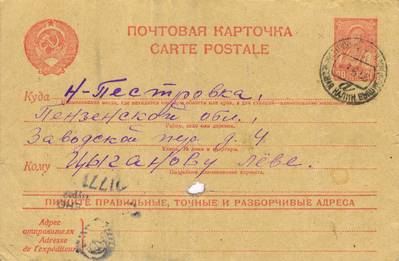 ПОЧТОВАЯ КАРТОЧКА
CARTE POSTALE
Куда Н-Пестровка,
Пензенской обл.,
Заводской пер. д. 4
Кому Цыганову Лёве.
Подробное наименование адресата
ПИШИТЕ ПРАВИЛЬНЫЕ, ТОЧНЫЕ И РАЗБОРЧИВЫЕ АДРЕСА
Адрес
отправителя
Adresse
de l'expéditeur